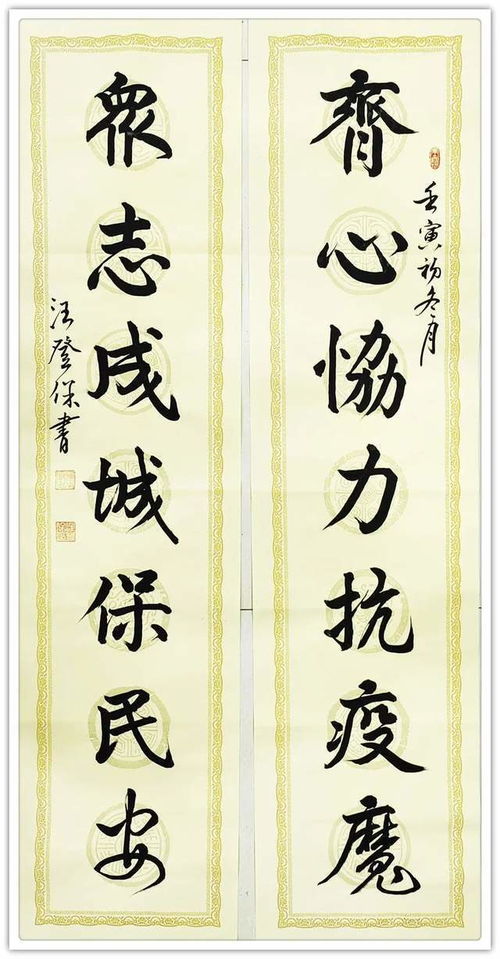 齊心恊力抗疫魔
壬寅初冬月
眾志成城保民安
汪登保書